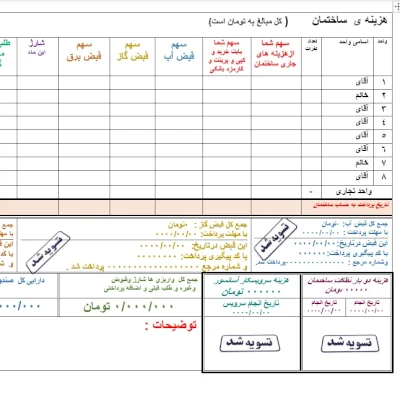 هزینه ی ساختمان ( کل مبالغ به تومان است)
واحد
اسامی واحد
تعداد نفرات
سهم شما از هزینه های جاری ساختمان
سهم شما بابت خرید و کپی و پرینت و کارمزد بانکی
سهم قبض آب
سهم قبض گاز
سهم قبض برق
شارژ این ماه
۱ آقای
۲ خانم
۳ آقای
۴ آقای
۵ آقای
۶ آقای
۷ خانم
۸ آقای
واحد تجاری -
تاریخ پرداخت به حساب ساختمان
جمع کل قبض آب: ۰تومان
با مهلت پرداخت : ۰۰۰۰/۰۰/۰۰
این قبض درتاریخ: ۰۰۰۰/۰۰/۰۰
با کد پیگیری
و شماره مرجع پرداخت شد.
تسویه شد
جمع کل قبض گاز : ۰تومان
با مهلت پرداخت: ۰۰۰۰/۰۰/۰۰
این قبض درتاریخ: ۰۰۰۰/۰۰/۰۰
با کد پیگیری
و شماره مرجع پرداخت شد .
تسویه شد
هزینه دو بار نظافت ساختمان
۰۰۰۰۰ تومان
تاریخ انجام
تاریخ انجام
۰۰۰۰/۰۰/۰۰
۰۰۰۰/۰۰/۰۰
تسویه شد
هزینه سرویسکار آسانسور
۰۰۰۰۰۰ تومان
تاریخ انجام سرویس
۰۰۰۰/۰۰/۰۰
تسویه شد
جمع کل واریزی ها شارژ وقبوض
وغیره و طلب قبلی و اضافه پرداختی
۰/۰۰۰/۰۰۰ تومان
دارایی کل
توضیحات :